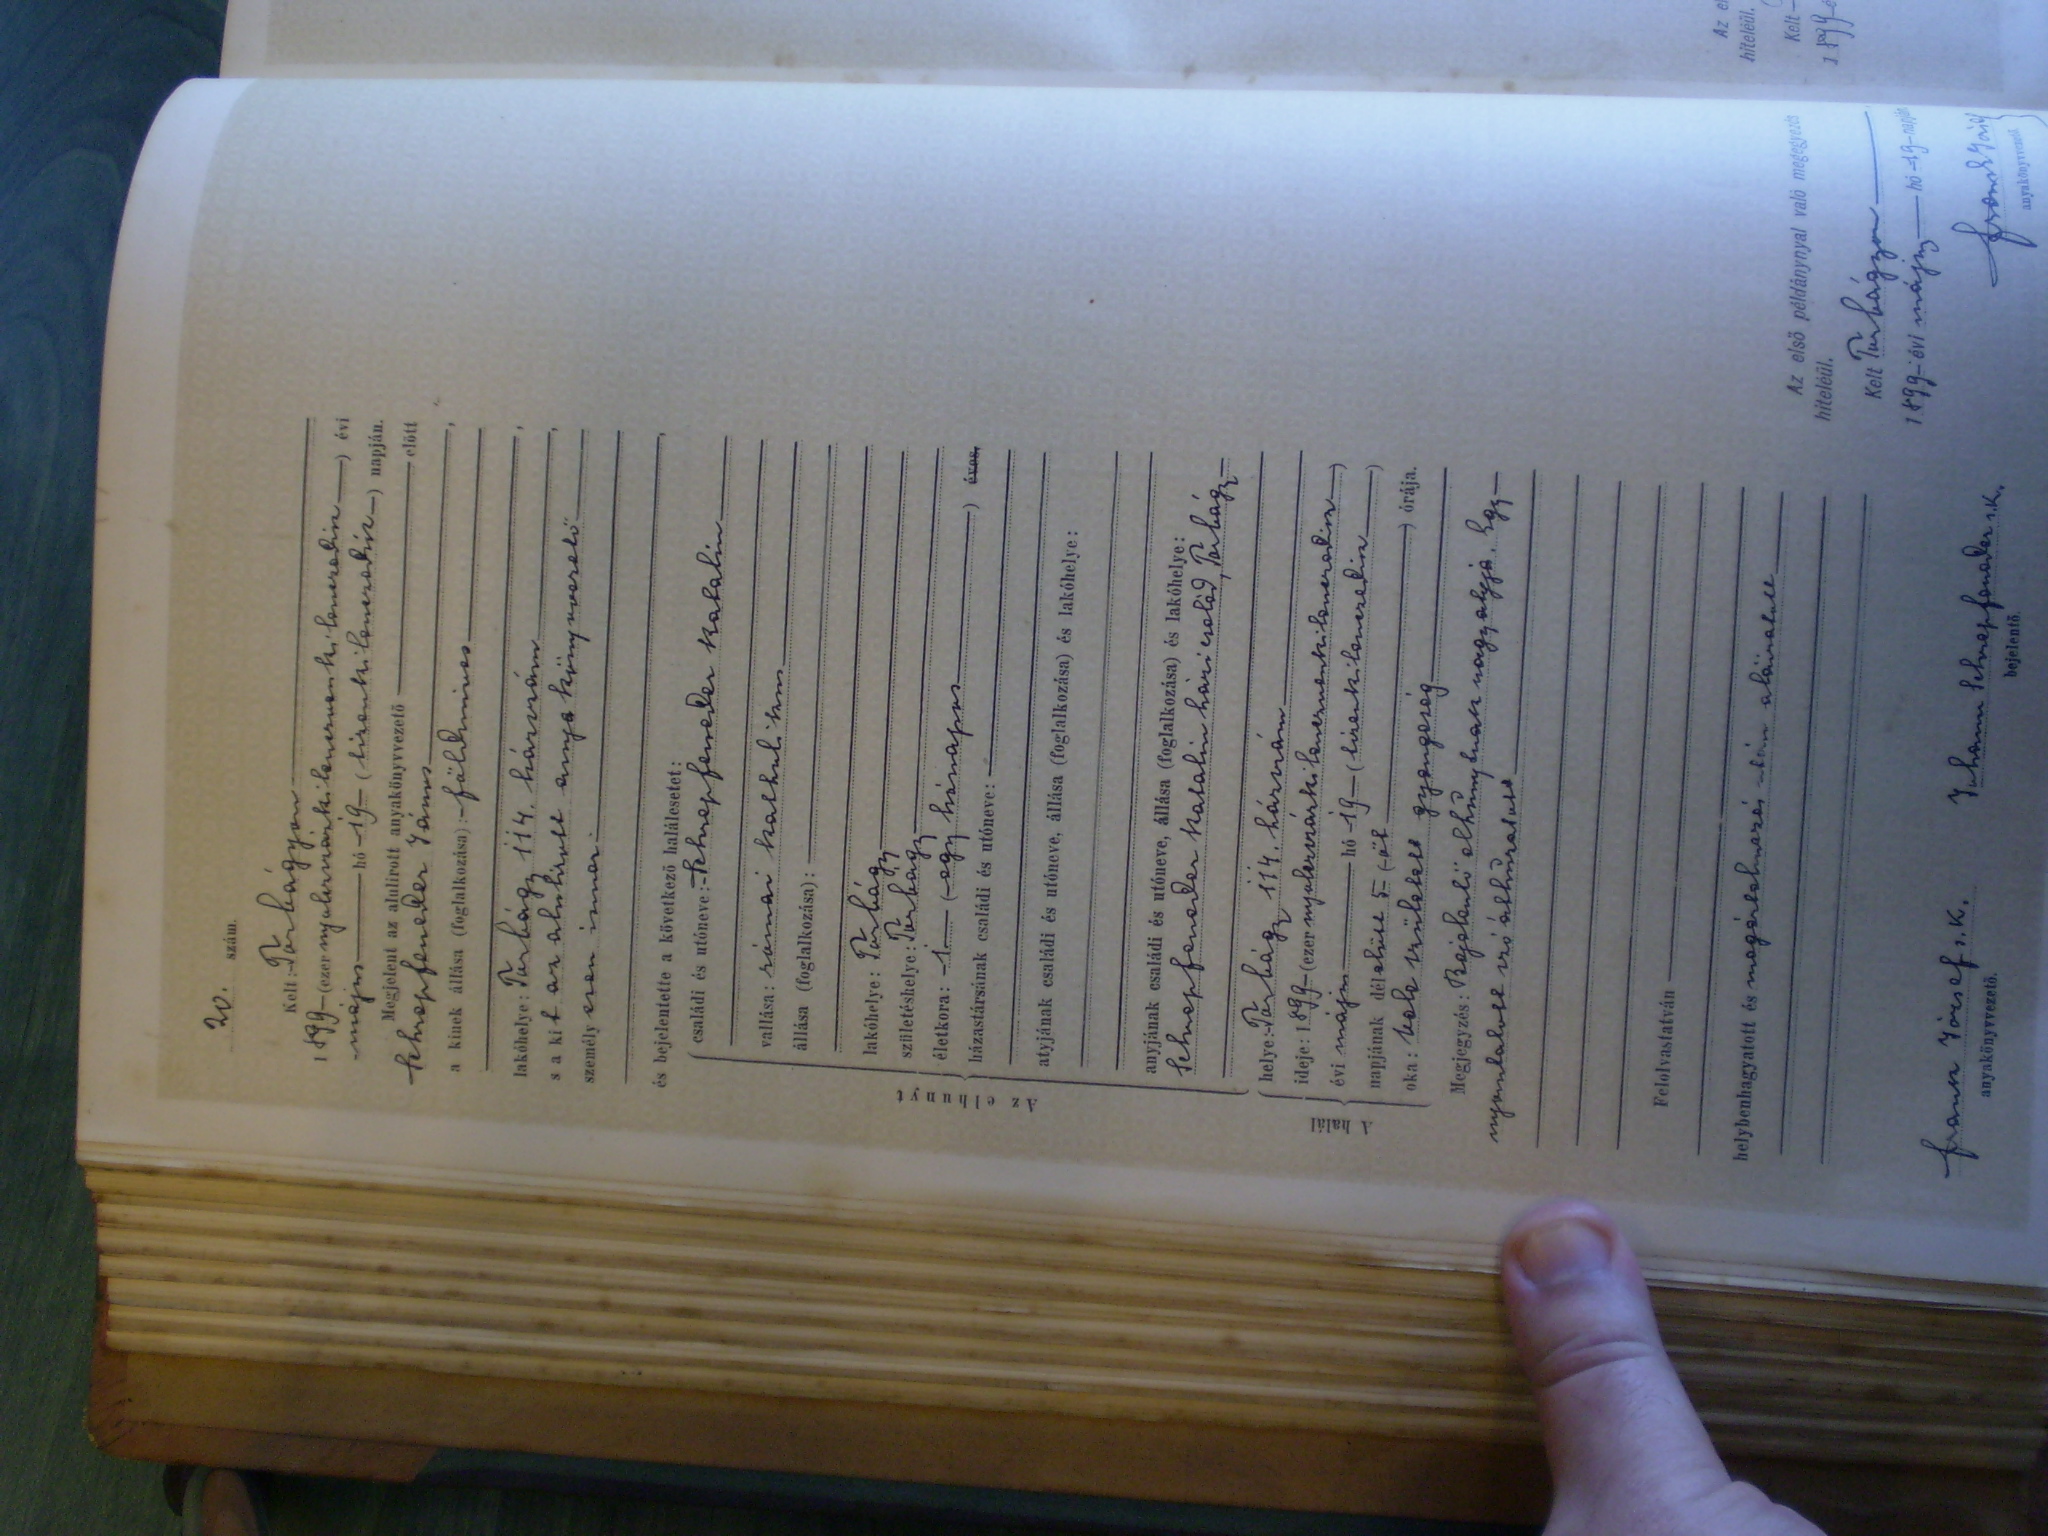 20. szám.
Kelt: Torbágyon
1899 (ezernyolczszázkilenczvenkilenczedik) évi
május hó 19 (tizenkilenczedik) napján.
Megjelent az alulirott anyakönyvezető előtt
Schnepfeneder János,
a kinek állása (foglalkozása): földmives
lakóhelye: Torbágy 114. házszám,
s a kit az alulirott anyakönyvvezető,
személyesen ismer
és bejelentette a következő halálesetet:
Az elhunyt
családi és utóneve: Schnepfeneder Katalin
vallása: római katholikus
állása (foglalkozása):
lakóhelye: Torbágy
születéshelye: Torbágy
életkora: 1 (egy hónapos) éves,
házastársának családi és utóneve:
atyjának családi és utóneve, állása (foglalkozása) és lakóhelye:
anyjának családi és utóneve, állása (foglalkozása) és lakóhelye:
Schnepfeneder Katalin házi cseléd, Torbágy
A halál
helye: Torbágy 114. házszám
ideje: 1899 (ezernyolczszázkilenczvenkilenczedik)
évi május hó 19 (tizenkilenczedik)
napjának délelőtt 5 (öt) órája.
oka: vele született gyengeség
Megjegyzés: Bejelentő elhúnytnak nagyatyja. Egy
nyomtatott szó áthúzatott
Felolvastatván
helybenhagyatott és magyarázás után aláíratott
Franz József s. k. Johann Schnepfeneder s. k.
anyakönyvezető. bejelentő.
Az első példánynyal való megegyezés
hiteléül.
Kelt Torbágyon
1899 évi május hó 19 napján
Franz József
anyakönyvezető.
hiteléül.
Kelt